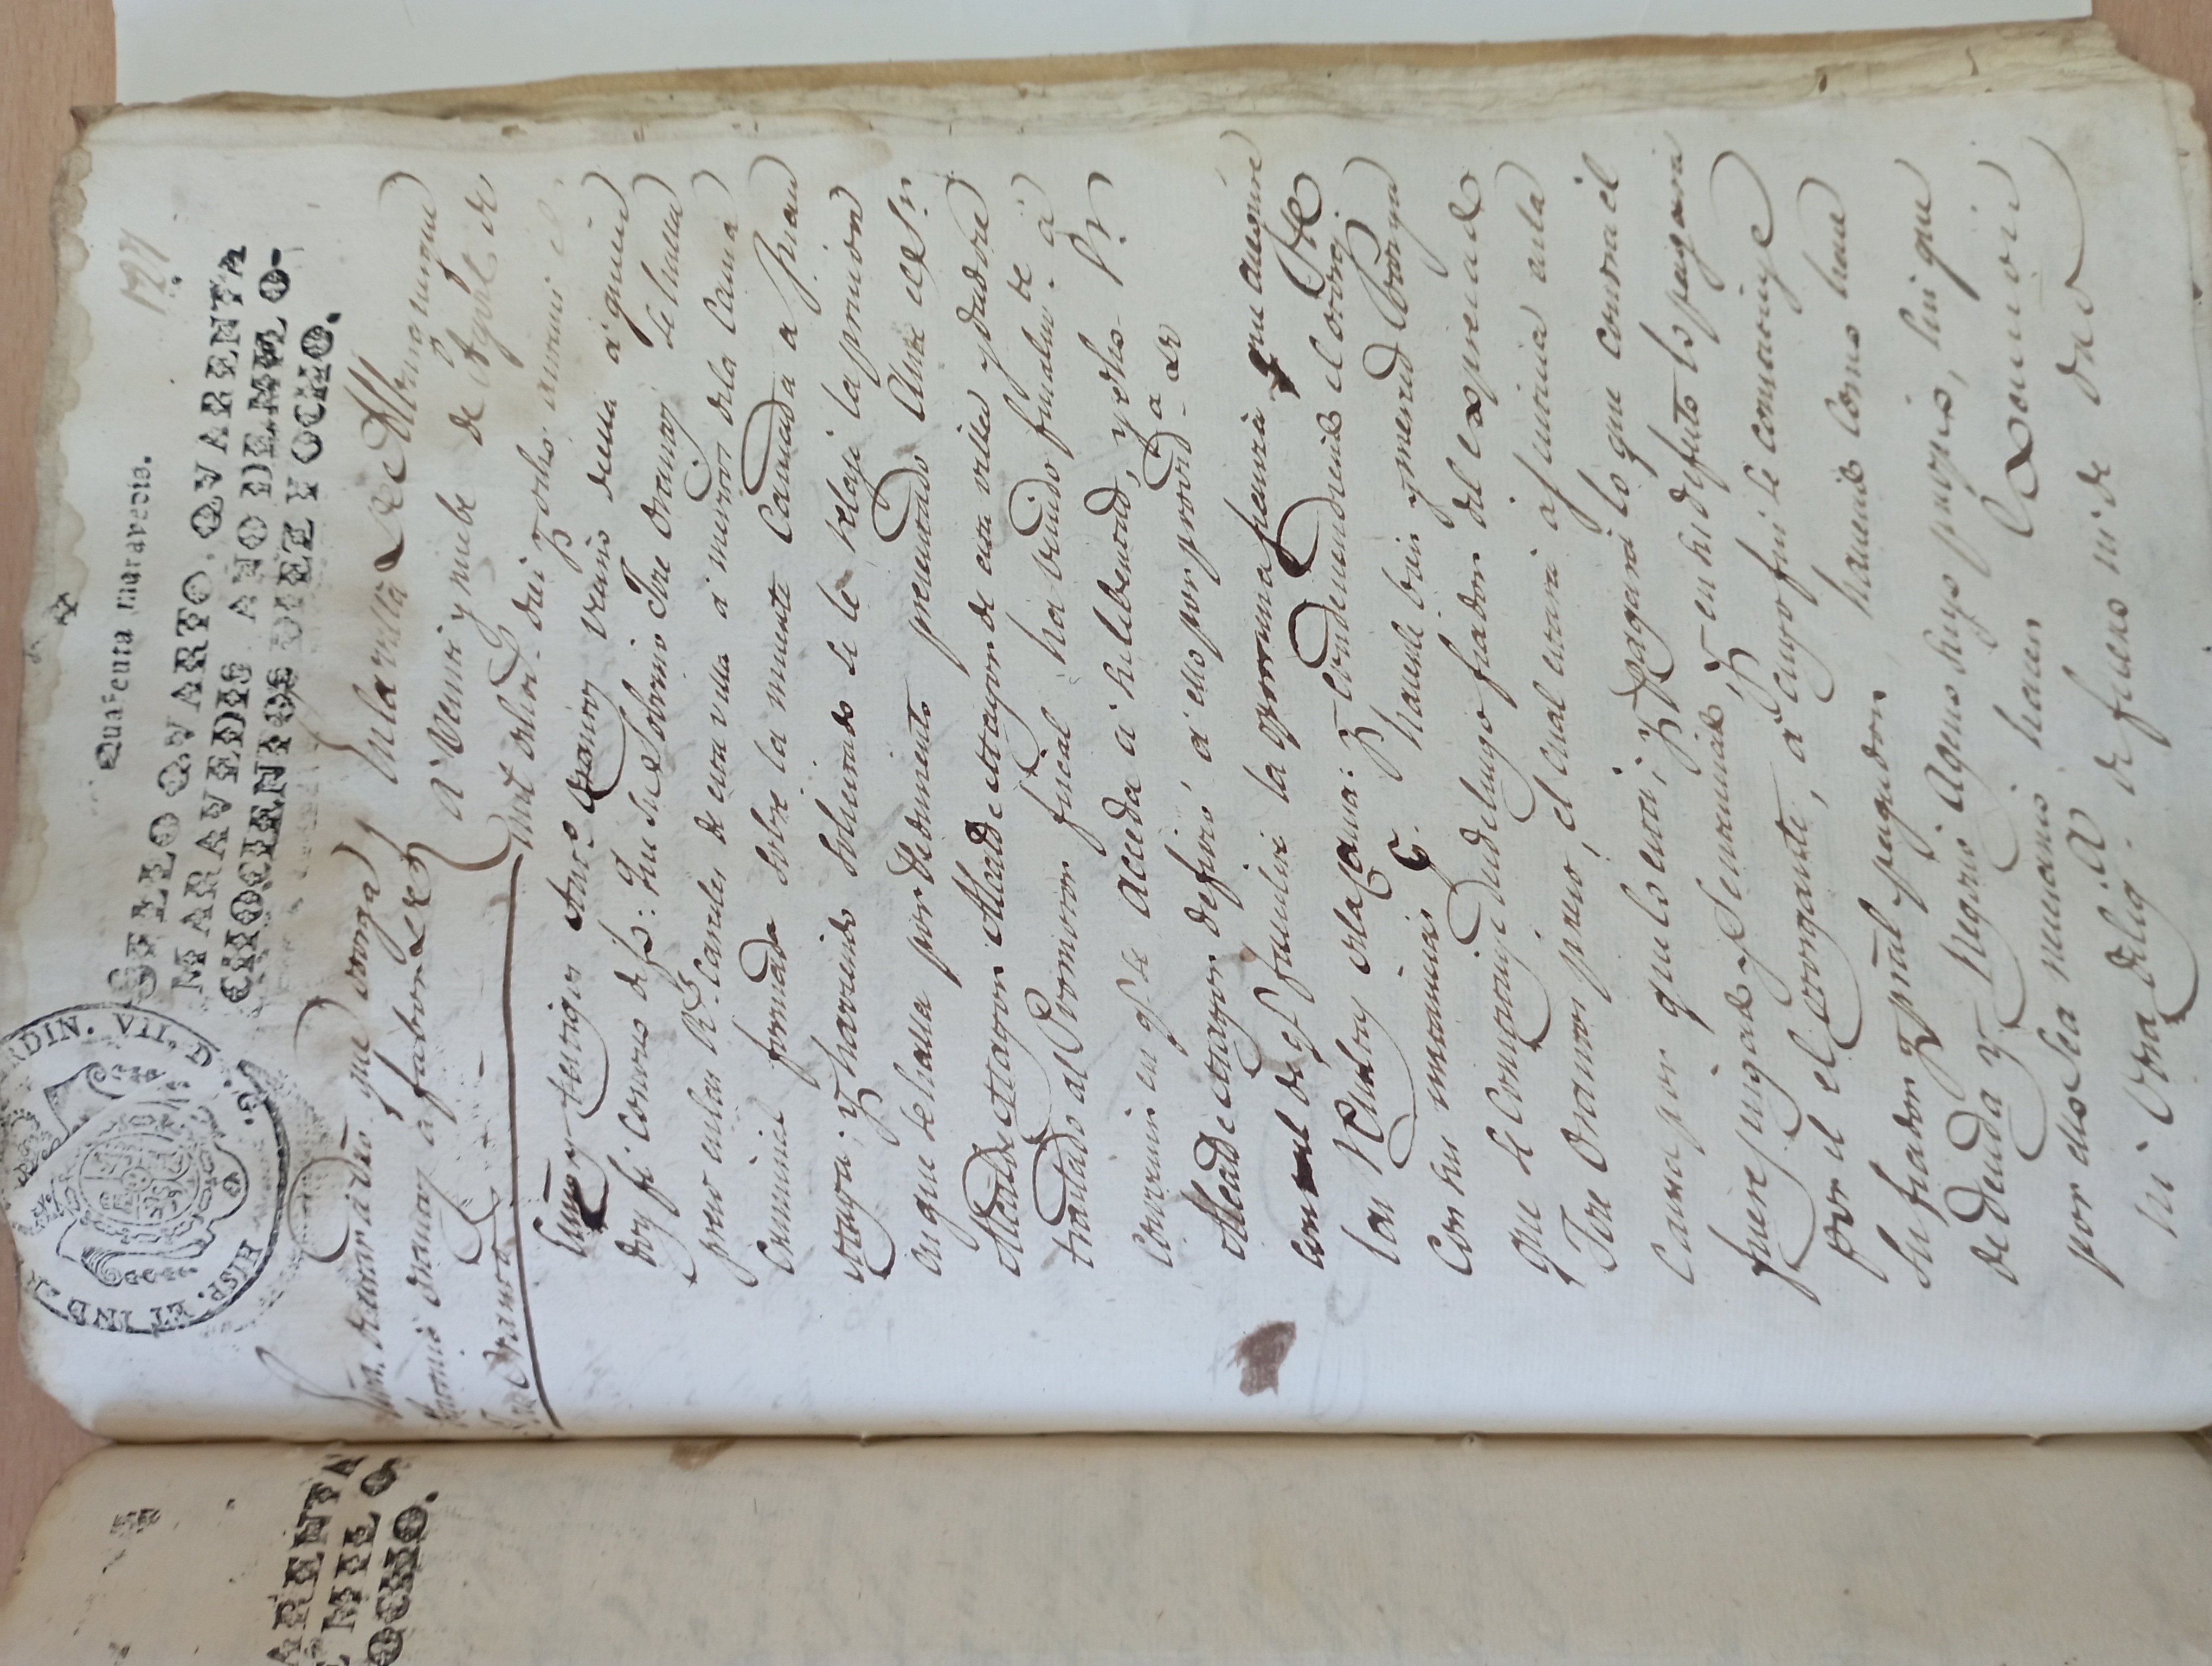 ARENTA
E MIL O
OCHO.
HISP. ET IND. R
RDIN. VII. D. G.
Quarenta maravedis.
127
SELLO QVARTO. QVARENTA
MARAVEDIS AÑO DE MIL O-
CHOCIENTOS DIEZ Y OCHO.
de estar a dro. que otorga
Antonio Orantos a fabor de
Jose Orantos
En la villa de Alburquerque
a veinte y nuebe de Abril de
mil ochoc. diez y ocho: ante mi el
Essno y testigos Anto. Orantos vecino de ella a quien
doy fe conozco dijo: Que su Sobrino Jose Orantos se halla
preso en las Rs. Carceles de esta villa a meritos de la Causa
Criminal formada sobre la muerte Causada a Juan
Maya; y haviendo solicitado se le relaje la prision
en que se halla por Pedimento presentado Ante el Sr.
Alcalde Mayor Alcalde Mayor de esta villa y dadose
traslado al Promotor fiscal ha venido finalmte. a
convenir en q. se acceda a su libertad, y dho. Sr.
Alcalde Mayor defirio a ello por provida. de
con tal de q. facilite la oportuna fianza que asegure
las Resultas de la Causa: y condescendiendo el otorgte.
Con sus instancias p. hacerle bien y merced Otorga
que se Constituye desde luego fiador del expresado
Jose Orantos preso, el cual estara a justicia en la
Causa por que lo esta; y pagara lo que contra el
fuere juzgado y Sentenciado, y en su defecto lo pagara
por el el otorgante, a cuyo fin se constituye
su fiador y pral pagador haciendo como hace
de deuda y negocio Ageno suyo propio, sin que
por ello sea necesario hacer Excursion
ni Otra diliga. de fuero ni de dro